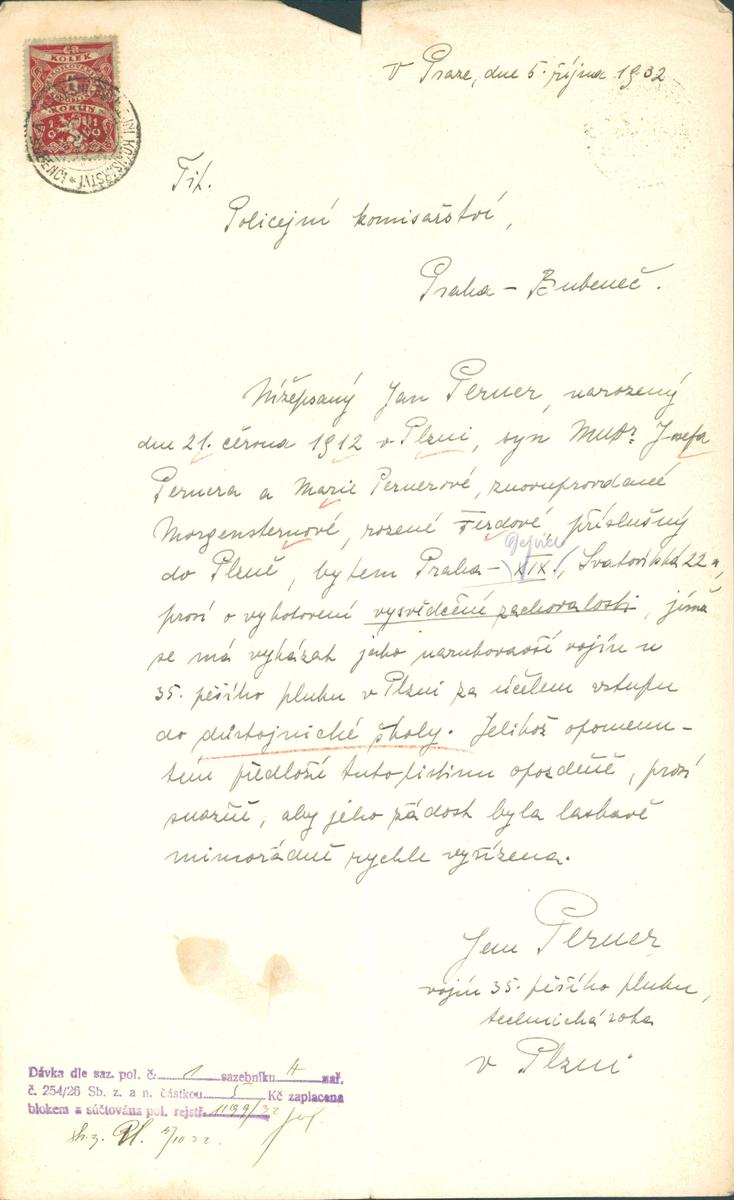 KOLEK
KORUN
V Praze, dne 5. října 1932
Tit.
Policejní komisařství,
Praha – Bubeneč.
Nížepsaný Jan Perner, narozený
dne 21. června 1912 v Plzni, syn MUDr Josefa
Pernera a Marie Pernerové, znovuprovdané
Morgensternové, rozené Ferdové, příslušný
Dejvice
do Plzně, bytem Praha – XIX., Svatovítská 22,
prosí o vyhotovení vysvědčení zachovalosti, jímž
se má vykázat jako narukovavší vojín u
35. pěšího pluku v Plzni za účelem vstupu
do důstojnické školy. Jelikož opomenu-
tím předloží tuto listinu opozděně, prosí
snažně, aby jeho žádost byla laskavě
mimořádně rychle vyřízena.
Jan Perner
vojín 35. pěšího pluku,
technická rota
v Plzni
Dávka dle saz. pol. č. 1 sazebníku A nař.
č. 254/26 Sb. z. a n. částkou 5 Kč zaplacena
blokem a súčtována pol. rejstř. 1199/32
5/10 32